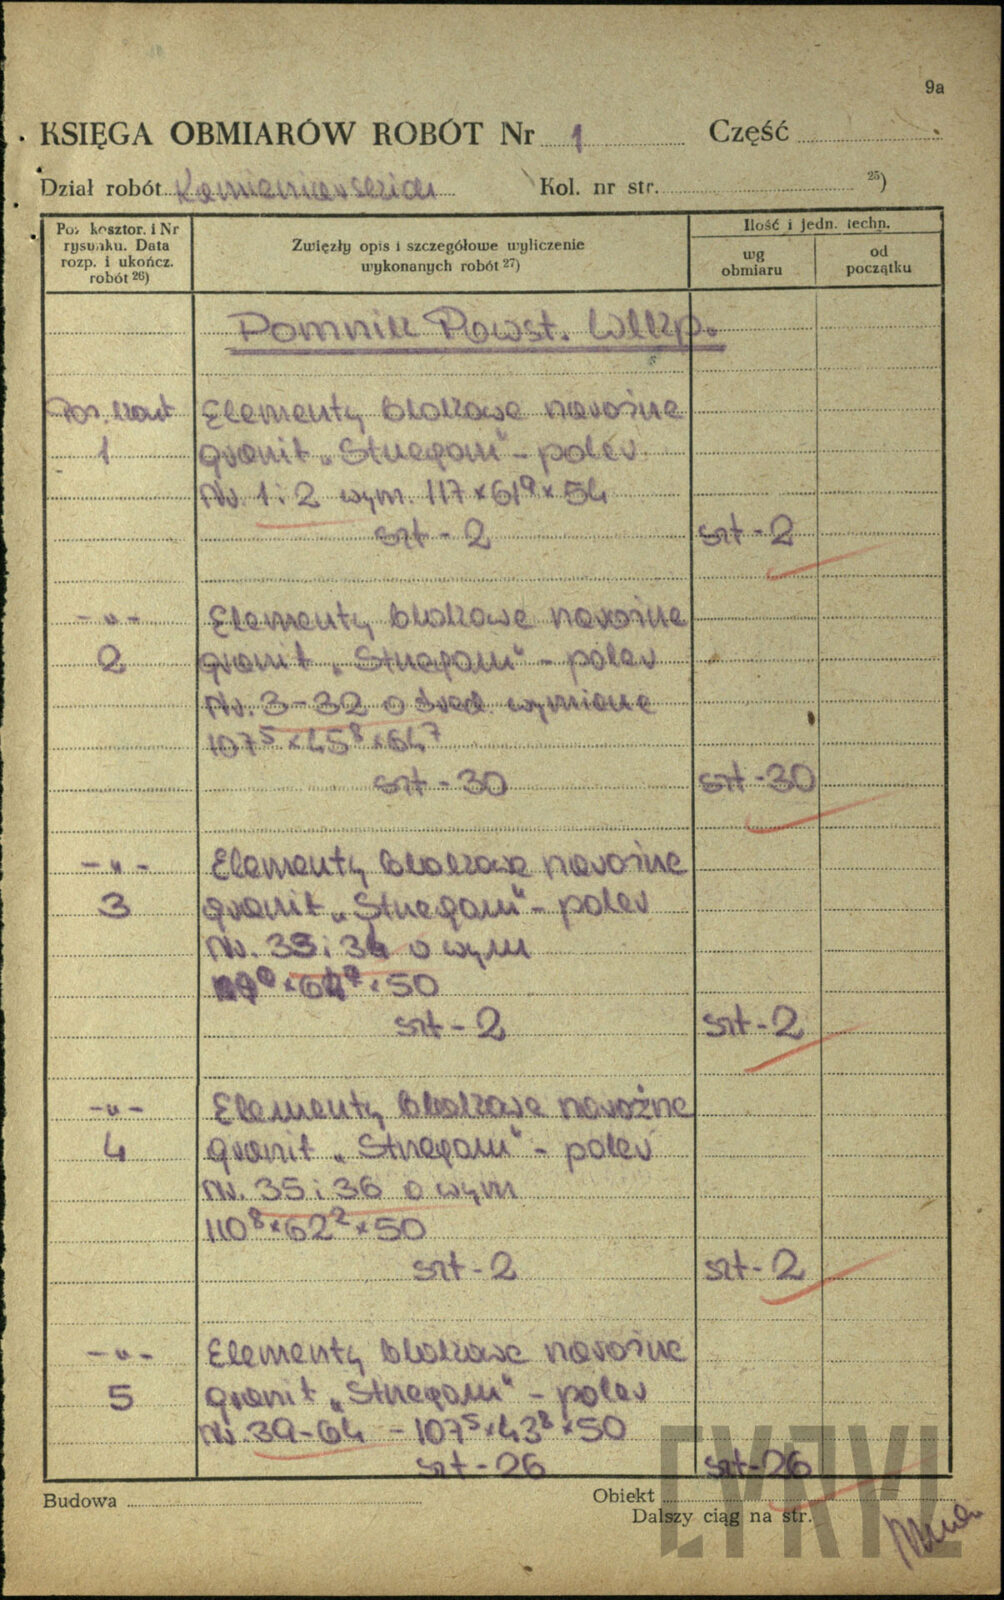 9a
KSIĘGA OBMIARÓW ROBÓT Nr 1 Część
Dział robót Kamieniarszczyzn Kol. nr str. 25)
Poz. kosztor. i Nr rysunku. Data rozp. i ukończ. robót 26)
Zwięzły opis i szczegółowe wyliczenie wykonanych robót 27)
Ilość i jedn. techn.
wg obmiaru
od początku
Pomnik Powst. Wlkp.
Poz. koszt Elementy blokowe narożne
1 granit „Strzegom" - poler.
Nr. 1 i 2 wym. 117 x 61⁹ x 54
szt - 2 szt - 2
-"- Elementy blokowe narożne
2 granit „Strzegom" - poler
Nr. 3-32 o śred. wymiarze
107⁵ x 45⁸ x 64⁷
szt - 30 szt - 30
-"- Elementy blokowe narożne
3 granit „Strzegom" - poler
Nr. 33 i 34 o wym
x 50
szt - 2 szt - 2
-"- Elementy blokowe narożne
4 granit „Strzegom" - poler
Nr. 35 i 36 o wym
110⁸ x 62² x 50
szt - 2 szt - 2
-"- Elementy blokowe narożne
5 granit „Strzegom" - poler
Nr. 39-64 - 107⁵ x 43⁸ x 50
szt - 26 szt - 26
Budowa Obiekt
Dalszy ciąg na str.
CYRYL